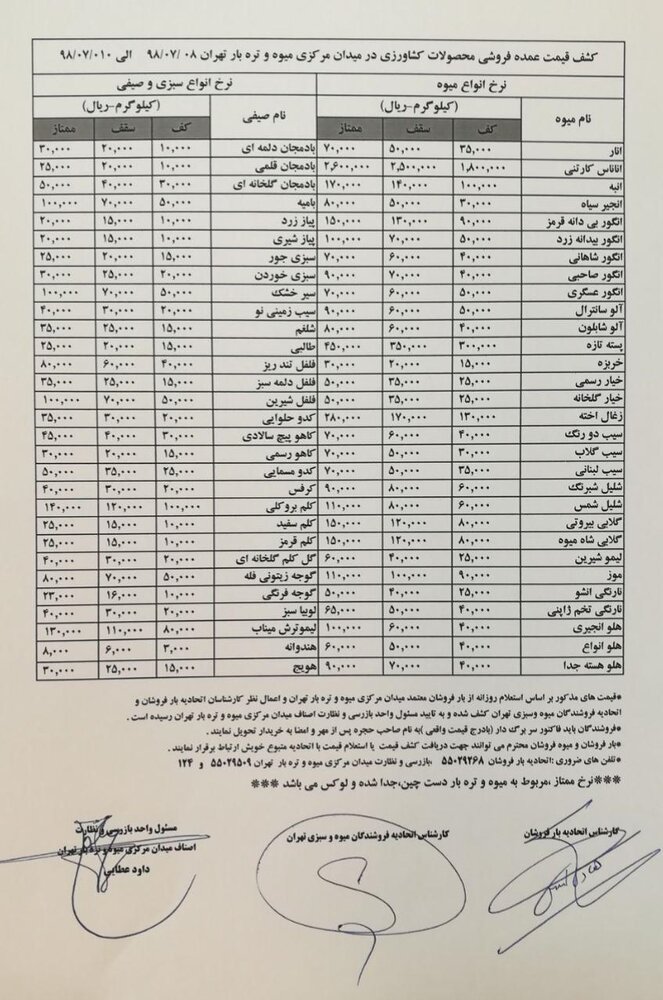 کشف قیمت عمده فروشی محصولات کشاورزی در میدان مرکزی میوه و تره بار تهران ۰۸ /۹۸/۰۷ الی ۹۸/۰۷/۰۱۰
نرخ انواع میوه نرخ انواع سبزی و صیفی
نام میوه (کیلوگرم-ریال) نام صیفی (کیلوگرم-ریال)
کف سقف ممتاز کف سقف ممتاز
انار ۳۵,۰۰۰ ۵۰,۰۰۰ ۷۰,۰۰۰ بادمجان دلمه ای ۱۰,۰۰۰ ۲۰,۰۰۰ ۳۰,۰۰۰
اناناس کارتنی ۱,۸۰۰,۰۰۰ ۲,۵۰۰,۰۰۰ ۲,۶۰۰,۰۰۰ بادمجان قلمی ۱۰,۰۰۰ ۲۰,۰۰۰ ۲۵,۰۰۰
انبه ۱۰۰,۰۰۰ ۱۴۰,۰۰۰ ۱۷۰,۰۰۰ بادمجان گلخانه ای ۳۰,۰۰۰ ۴۰,۰۰۰ ۵۰,۰۰۰
انجیر سیاه ۳۰,۰۰۰ ۵۰,۰۰۰ ۸۰,۰۰۰ بامیه ۵۰,۰۰۰ ۷۰,۰۰۰ ۱۰۰,۰۰۰
انگور بی دانه قرمز ۹۰,۰۰۰ ۱۳۰,۰۰۰ ۱۵۰,۰۰۰ پیاز زرد ۱۰,۰۰۰ ۱۵,۰۰۰ ۲۰,۰۰۰
انگور بیدانه زرد ۵۰,۰۰۰ ۷۰,۰۰۰ ۱۰۰,۰۰۰ پیاز شیری ۱۰,۰۰۰ ۱۵,۰۰۰ ۲۰,۰۰۰
انگور شاهانی ۴۰,۰۰۰ ۶۰,۰۰۰ ۷۰,۰۰۰ سبزی جور ۱۵,۰۰۰ ۲۰,۰۰۰ ۲۵,۰۰۰
انگور صاحبی ۴۰,۰۰۰ ۷۰,۰۰۰ ۹۰,۰۰۰ سبزی خوردن ۲۰,۰۰۰ ۲۵,۰۰۰ ۳۰,۰۰۰
انگور عسگری ۵۰,۰۰۰ ۶۰,۰۰۰ ۷۰,۰۰۰ سیر خشک ۵۰,۰۰۰ ۷۰,۰۰۰ ۱۰۰,۰۰۰
آلو سانترال ۵۰,۰۰۰ ۶۰,۰۰۰ ۹۰,۰۰۰ سیب زمینی نو ۲۰,۰۰۰ ۳۰,۰۰۰ ۴۰,۰۰۰
آلو شابلون ۴۰,۰۰۰ ۶۰,۰۰۰ ۸۰,۰۰۰ شلغم ۱۵,۰۰۰ ۲۵,۰۰۰ ۳۵,۰۰۰
پسته تازه ۳۰۰,۰۰۰ ۳۵۰,۰۰۰ ۴۵۰,۰۰۰ طالبی ۱۵,۰۰۰ ۲۰,۰۰۰ ۲۵,۰۰۰
خربزه ۱۵,۰۰۰ ۲۰,۰۰۰ ۳۰,۰۰۰ فلفل تند ریز ۴۰,۰۰۰ ۶۰,۰۰۰ ۸۰,۰۰۰
خیار رسمی ۲۵,۰۰۰ ۳۵,۰۰۰ ۵۰,۰۰۰ فلفل دلمه سبز ۱۵,۰۰۰ ۲۵,۰۰۰ ۳۵,۰۰۰
خیار گلخانه ۲۵,۰۰۰ ۳۵,۰۰۰ ۵۰,۰۰۰ فلفل شیرین ۵۰,۰۰۰ ۷۰,۰۰۰ ۱۰۰,۰۰۰
زغال اخته ۱۳۰,۰۰۰ ۱۷۰,۰۰۰ ۲۸۰,۰۰۰ کدو حلوایی ۲۰,۰۰۰ ۳۰,۰۰۰ ۳۵,۰۰۰
سیب دو رنگ ۴۰,۰۰۰ ۶۰,۰۰۰ ۷۰,۰۰۰ کاهو پیچ سالادی ۳۰,۰۰۰ ۴۰,۰۰۰ ۴۵,۰۰۰
سیب گلاب ۳۰,۰۰۰ ۵۰,۰۰۰ ۷۰,۰۰۰ کاهو رسمی ۱۵,۰۰۰ ۲۰,۰۰۰ ۳۰,۰۰۰
سیب لبنانی ۳۵,۰۰۰ ۵۰,۰۰۰ ۷۰,۰۰۰ کدو مسمایی ۲۵,۰۰۰ ۳۵,۰۰۰ ۵۰,۰۰۰
شلیل شبرنگ ۶۰,۰۰۰ ۸۰,۰۰۰ ۹۰,۰۰۰ کرفس ۲۰,۰۰۰ ۳۰,۰۰۰ ۴۰,۰۰۰
شلیل شمس ۶۰,۰۰۰ ۸۰,۰۰۰ ۱۱۰,۰۰۰ کلم بروکلی ۱۰۰,۰۰۰ ۱۲۰,۰۰۰ ۱۴۰,۰۰۰
گلابی بیروتی ۸۰,۰۰۰ ۱۲۰,۰۰۰ ۱۵۰,۰۰۰ کلم سفید ۱۰,۰۰۰ ۱۵,۰۰۰ ۲۵,۰۰۰
گلابی شاه میوه ۸۰,۰۰۰ ۱۲۰,۰۰۰ ۱۵۰,۰۰۰ کلم قرمز ۱۰,۰۰۰ ۱۵,۰۰۰ ۲۵,۰۰۰
لیمو شیرین ۲۵,۰۰۰ ۴۰,۰۰۰ ۶۰,۰۰۰ گل کلم گلخانه ای ۲۰,۰۰۰ ۳۰,۰۰۰ ۴۰,۰۰۰
موز ۹۰,۰۰۰ ۱۰۰,۰۰۰ ۱۱۰,۰۰۰ گوجه زیتونی فله ۵۰,۰۰۰ ۷۰,۰۰۰ ۸۰,۰۰۰
نارنگی انشو ۲۵,۰۰۰ ۴۰,۰۰۰ ۵۰,۰۰۰ گوجه فرنگی ۱۰,۰۰۰ ۱۶,۰۰۰ ۲۳,۰۰۰
نارنگی تخم ژاپنی ۴۰,۰۰۰ ۵۰,۰۰۰ ۶۵,۰۰۰ لوبیا سبز ۲۰,۰۰۰ ۳۰,۰۰۰ ۴۰,۰۰۰
هلو انجیری ۴۰,۰۰۰ ۶۰,۰۰۰ ۱۰۰,۰۰۰ لیموترش میناب ۸۰,۰۰۰ ۱۱۰,۰۰۰ ۱۳۰,۰۰۰
هلو انواع ۴۰,۰۰۰ ۵۰,۰۰۰ ۶۰,۰۰۰ هندوانه ۳,۰۰۰ ۶,۰۰۰ ۸,۰۰۰
هلو هسته جدا ۴۰,۰۰۰ ۷۰,۰۰۰ ۹۰,۰۰۰ هویج ۱۵,۰۰۰ ۲۵,۰۰۰ ۳۰,۰۰۰
*قیمت های مذکور بر اساس استعلام روزانه از بار فروشان معتمد میدان مرکزی میوه و تره بار تهران و اعمال نظر کارشناسان اتحادیه بار فروشان و
اتحادیه فروشندگان میوه وسبزی تهران کشف شده و به تایید مسئول واحد بازرسی و نظارت اصناف میدان مرکزی میوه و تره بار تهران رسیده است .
*فروشندگان باید فاکتور سر برگ دار (بادرج قیمت واقعی )به نام صاحب حجره پس از مهر و امضا به خریدار تحویل نمایند .
*بار فروشان و میوه فروشان محترم می توانند جهت دریافت کشف قیمت یا استعلام قیمت با اتحادیه متبوع خویش ارتباط برقرار نمایند .
*تلفن های ضروری :اتحادیه بار فروشان ۵۵۰۲۹۲۶۸ ،بازرسی و نظارت میدان مرکزی میوه و تره بار تهران ۵۵۰۲۹۵۰۹ و ۱۲۴
***نرخ ممتاز ،مربوط به میوه و تره بار دست چین،جدا شده و لوکس می باشد ***
کارشناس اتحادیه بار فروشان کارشناس اتحادیه فروشندگان میوه و سبزی تهران مسئول واحد بازرسی و نظارت
اصناف میدان مرکزی میوه و تره بار تهران
داود عطایی